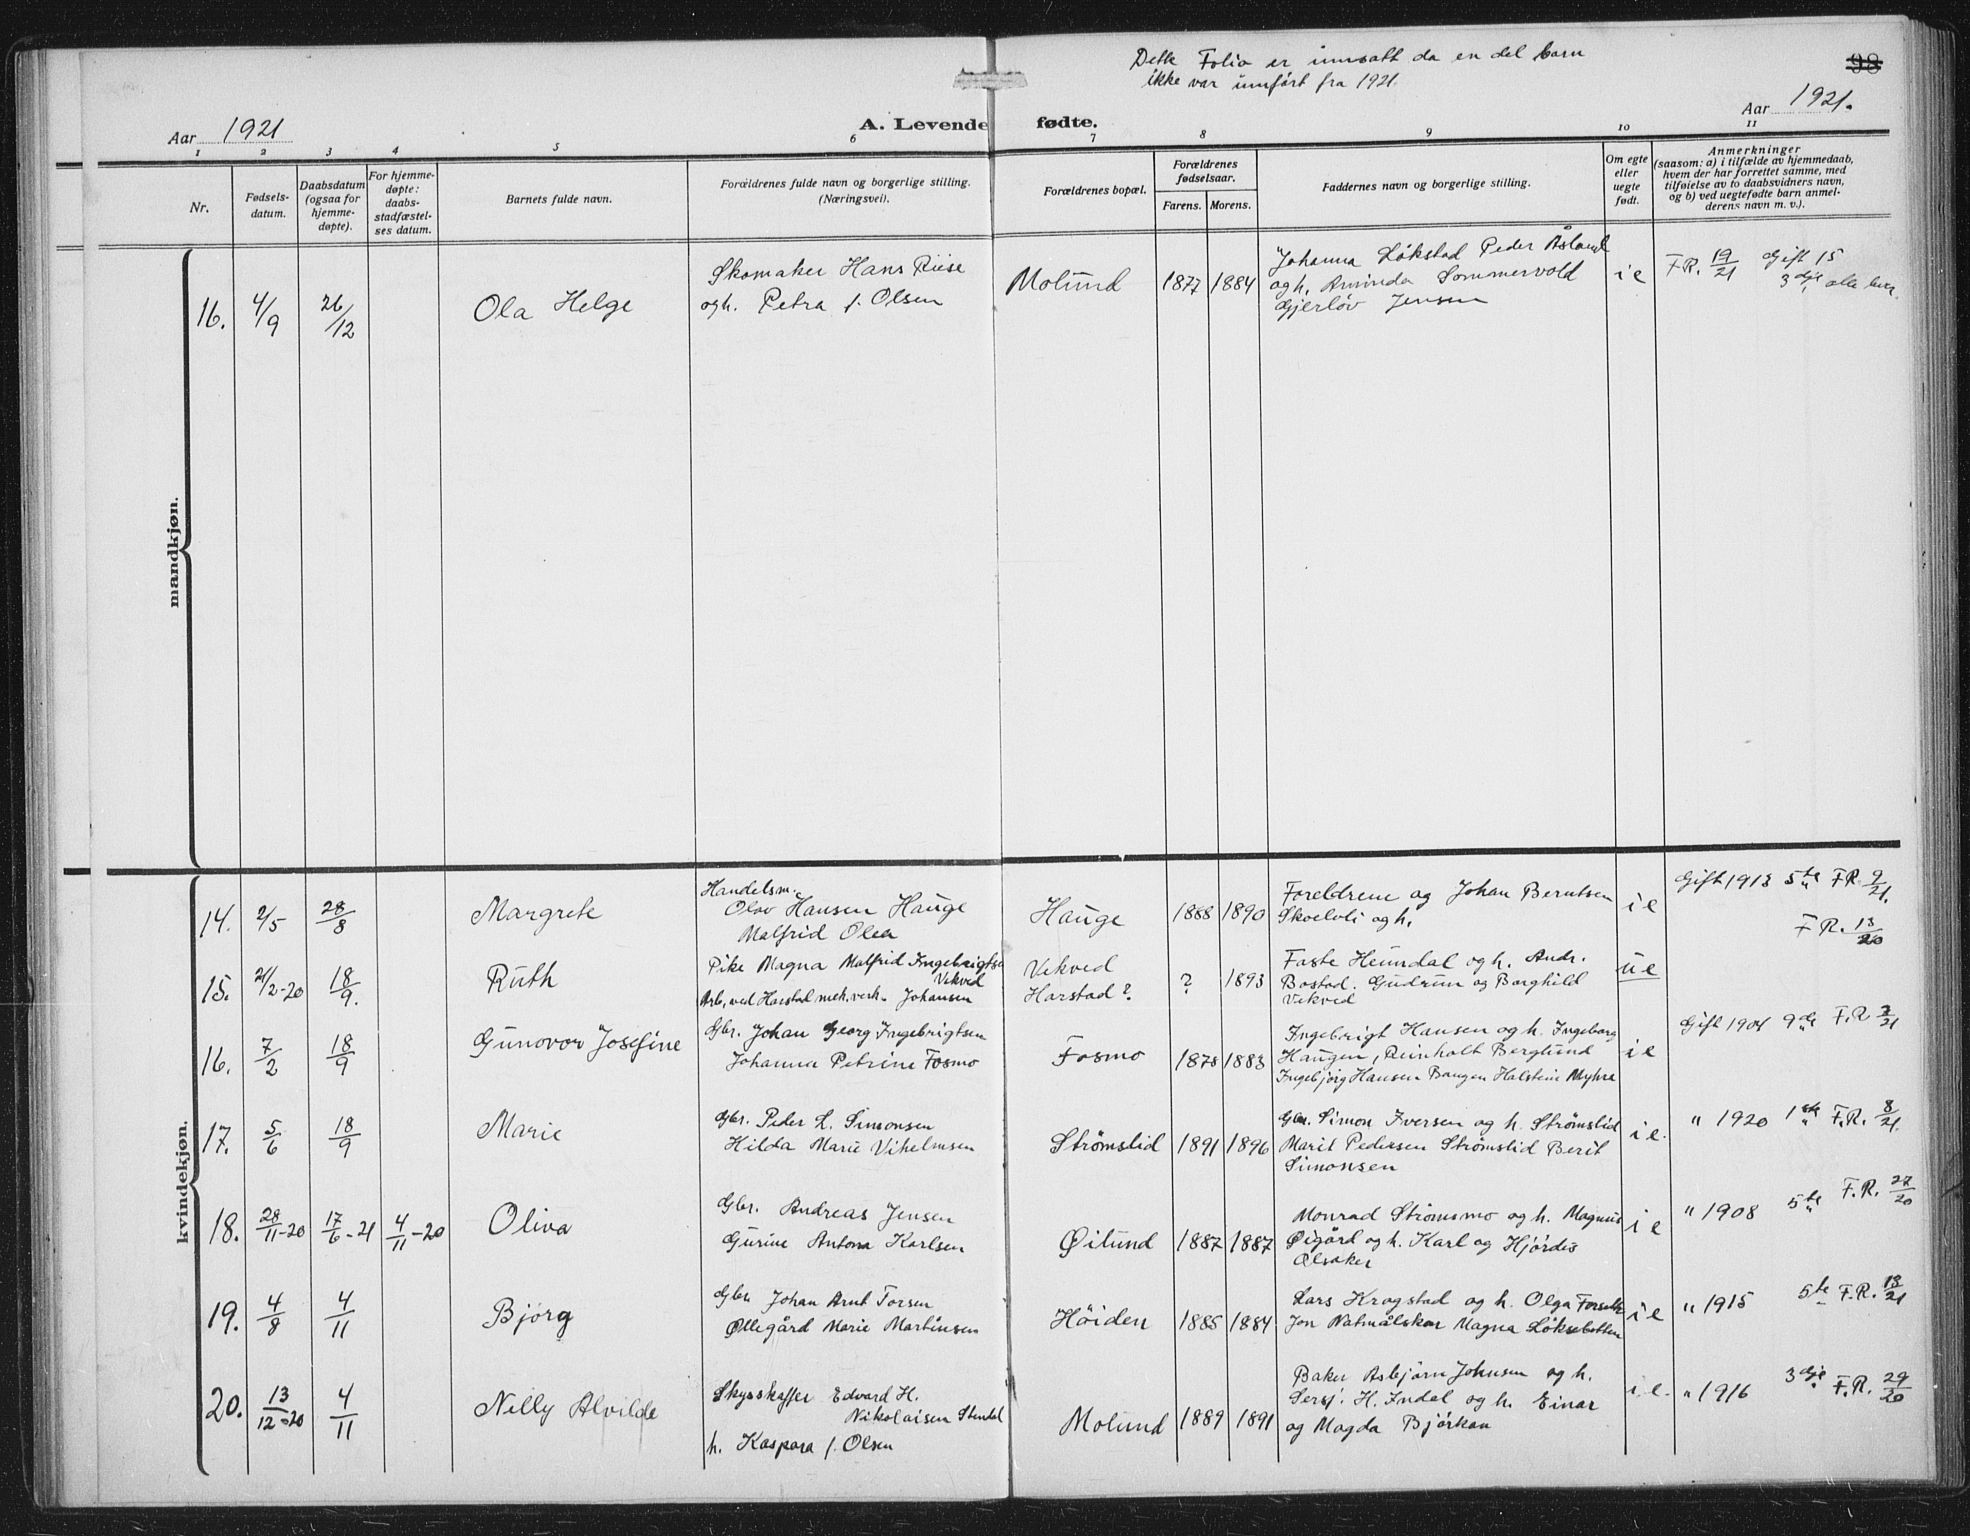 Dette Folio er innsatt da en del barn
ikke var innført fra 1921.
98
Aar 1921
A. Levende fødte.
Aar 1921.
1 2 3 4 5 6 7 8 9 10 11
Nr.
Fødsels-
datum.
Daabsdatum
(ogsaa for
hjemme-
døpte).
For hjemme-
døpte:
daabs-
stadfæstel-
ses datum.
Barnets fulde navn.
Forældrenes fulde navn og borgerlige stilling.
(Næringsvei).
Forældrenes bopæl.
Forældrenes
fødselsaar.
Farens. Morens.
Faddernes navn og borgerlige stilling.
Om egte
eller
uegte
født.
Anmerkninger
(saasom: a) i tilfælde av hjemmedaab,
hvem der har forrettet samme, med
tilføielse av to daabsvidners navn,
og b) ved uegtefødte barn anmel-
derens navn m. v.).
mandkjøn.
16. 4/9 26/12 Ola Helge
Skomaker Hans Riise
og h. Petra f. Olsen
Molund 1877 1884
Johanna Løkstad Peder Åsland
og h. Aminda Sommervold
Gjerløv Jensen
i e
F.R. 19/21 Gift 15
3dje alle lever.
kvindekjøn.
14. 2/5 28/8 Margrete
Handelsm.
Olav Hansen Hauge
Malfrid Olea
Hauge 1888 1890
Foreldrene og Johan Berntsen
Skoelvli og h.
i e
Gift 1913 5te F.R. 9/21.
F.R. 13/20
15. 21/2-20 18/9. Ruth
Pike Magna Malfrid Ingebrigtsn
Vikved
Arb. ved Harstad mek. verk. Johansen
Vikved
Harstad? ? 1893
Faste Heimdal og h. Andr.
Bostad. Gudrun og Borghild
Vikved
u e
16. 7/2 18/9 Gunovor Josefine
Gbr. Johan Georg Ingebrigtsen
Johanna Petrine Fosmo
Fosmo 1878 1883
Ingebrigt Hansen og h. Ingeborg
Haugen, Reinholt Berglund
Ingebjørg Hansen Bangen Halstein Myhra
i e
Gift 1904 9de F.R. 2/21
17. 5/6 18/9 Marie
Gbr. Peder L. Simonsen
Hilda Marie Vihelmsen
Strømslid 1891 1896
Gbr. Simon Iversen og h. Strømslid
Marit Pedersen Strømslid Berit
Simonsen
i e.
" 1920 1ste F.R. 8/21
18. 28/11-20 17/6-21 4/11-20 Oliva
Gbr. Andreas Jensen
Gurine Antona Karlsen
Øilund 1887 1887
Monrad Strømsmo og h. Magnus
Øigård og h. Karl og Hjørdis
Olsaker
i e
" 1908 5te F.R. 27/20
19. 4/8 4/11 Bjørg
Gbr. Johan Arnt Torsen
Øllegård Marie Martinsen
Høiden 1885 1884
Lars Krogstad og h. Olga Forseth
Jon Natmålskar Magna Løksebotten
i e
" 1915 5te F.R. 13/21
20. 13/12-20 4/11 Nelly Alvilde
Skysskaffer Edvard H.
Nikolaisen Stendal
h. Kaspara f. Olsen
Molund 1889 1891
Baker Asbjørn Johnsen og h.
Sersj. H. Indal og h. Einar
og Magda Bjørkan
i e.
" 1916 3dje F.R. 29/20